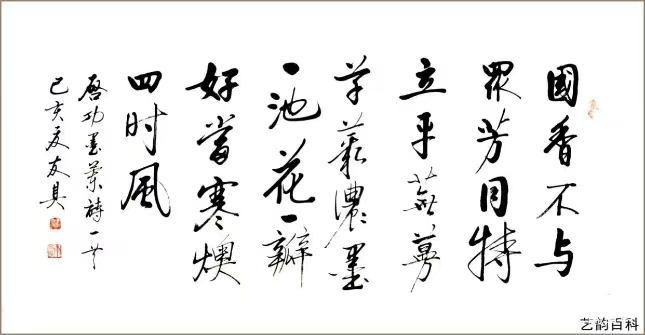 國香不与
眾芳同特
立平蕪蔓
草叢濃墨
一池花一瓣
好當寒燠
四时風
啓功墨蘭詩一首
己亥夏友具
艺韵百科